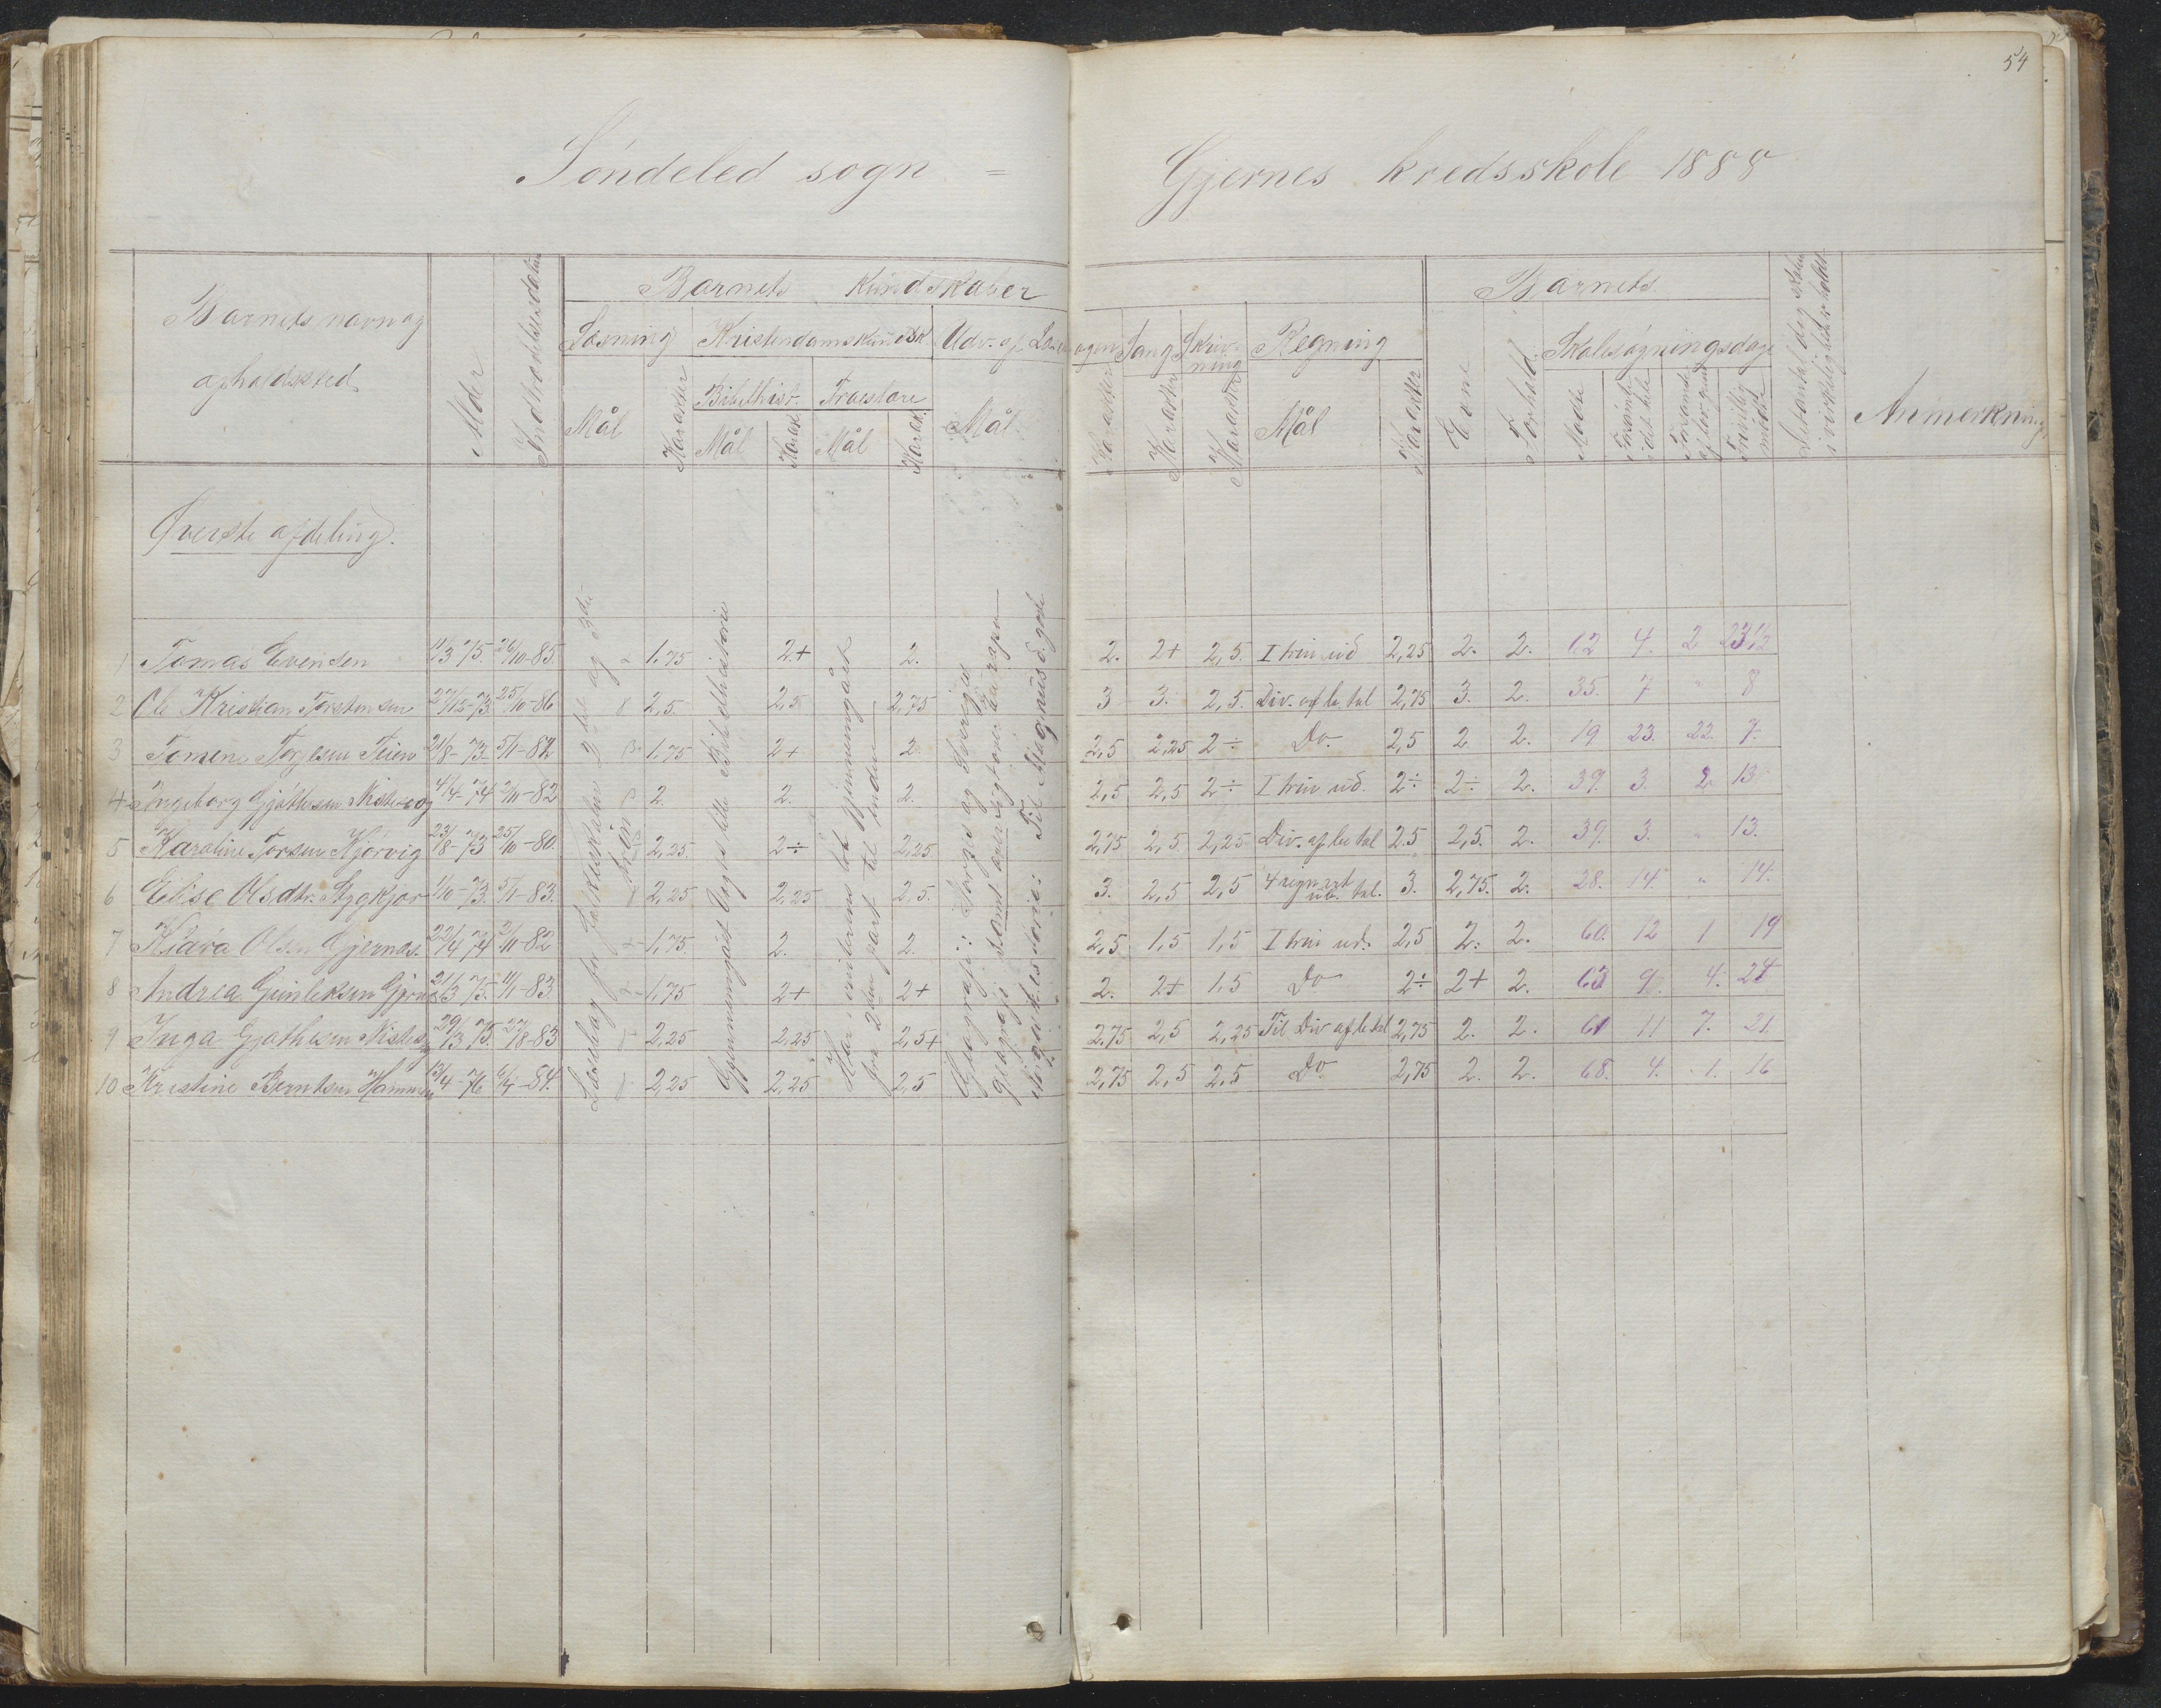 54
Søndeled sogn = Gjernes kredsskole 1888
Barnets navn og opholdssted
Alder
Indtrædelsesdatum
Barnets Kundskaber
Læsning
Mål
Karakter
Kristendomskundsk.
Bibelhist.
Mål
Karakt.
Troeslære
Mål
Karakt.
Udv. af Læsebogen
Mål
Karakter
Sang
Karakter
Skrivning
Karakter
Regning
Mål
Karakter
Barnets
Evne
Forhold
Skolesøgningsdage
Mødte
Forsømte i det hele
Forsømte af lov. grund
Frivillig mødte
Det antal dag skolen i virkeligheden holdt
Anmerkning
Øverste afdeling.
Læsebog for folkeskolen 2det og 3die trin
Gjennemgået Vogts lille Bibelhistorie
Har i vinterens løb gjennemgået fra 2den part til enden
Geografi: Norges og Sveriges geografi samt over Europa
Til Magnus d. gode
1 Tomas Evensen 11/3 75. 26/10-85. 1,75 2+ 2. 2. 2+ 2,5. I trin ud 2,25 2. 2. 62 4. 2 23 1/2
2 Ole Kristian Torstensen 27/12-73 25/10-86 2,5. 2,5 2,75 3 3. 2,5. Div. af be. tal 2,75 3. 2. 35. 7 " 8
3 Tomine Torjesen Teien 21/8-73. 5/1-82 1,75 2+ 2 2,5 2,25 2÷ Do. 2,5 2 2. 19 23. 22. 7.
4 Ingeborg Gjøthesen 4/4-74 2/10-82 2. 2. 2. 2,5 2,5 2÷ I trin ud. 2÷ 2÷ 2. 39. 3. 2 13.
5 Karoline Torsen Kjørvig 23/8-73 25/10-80. 2,25 2÷ 2,25 2,75 2,5. 2,25 Div. af be tal 2.5 2,5. 2. 39. 3. " 13.
6 Elise Olsdtr. 1/10-73. 5/1-83. 2,25 2,25 2,5. 3. 2,5 2,5 4 regn.art ub. tal. 3. 2,75. 2. 28. 14. " 14.
7 Klara Olsen Gjernæs. 22/4 74 2/10-82 1,75. 2. 2. 2,5 1,5 1,5 I trin ud. 2,5 2. 2. 60. 12 1 19
8 Andrea 21/3 75. 11/1-83 1,75 2+ 2+ 2. 2+ 1,5 Do 2÷ 2+ 2. 63 9. 4. 24
9 Inga Gjøthesen 29/3 75. 27/8-83 2,25 2,25 2,5+ 2.75 2,5 2,25 Til Div af be tal 2,75 2. 2. 61 11 7. 21.
10 Kristine Berntsen 13/4-76 6/4-84. 2,25 2,25 2,5 2,75 2,5 2,5 Do. 2,75 2. 2. 68. 4. 1. 16